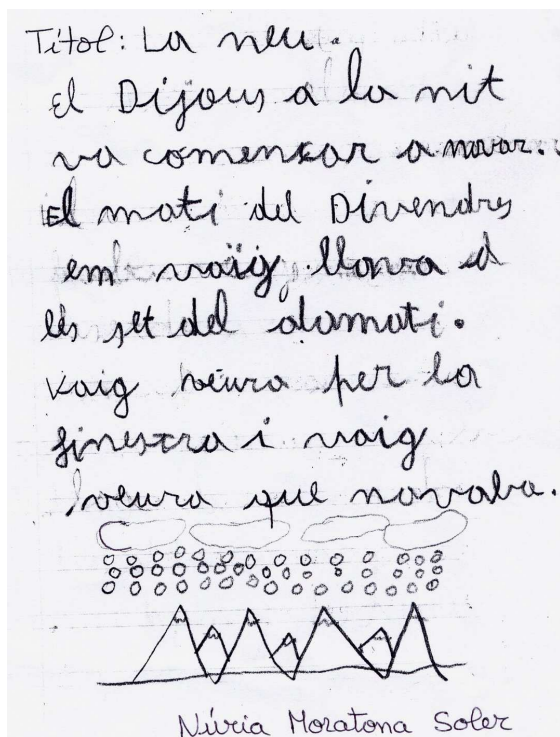 Títol: La neu.
El Dijous a la nit
va comenxar a navar.
El mati del Divendres
em vaig llava a
les set del damati.
Vaig veura per la
finestra i vaig
veura que navaba.
Núria Moratona Soler